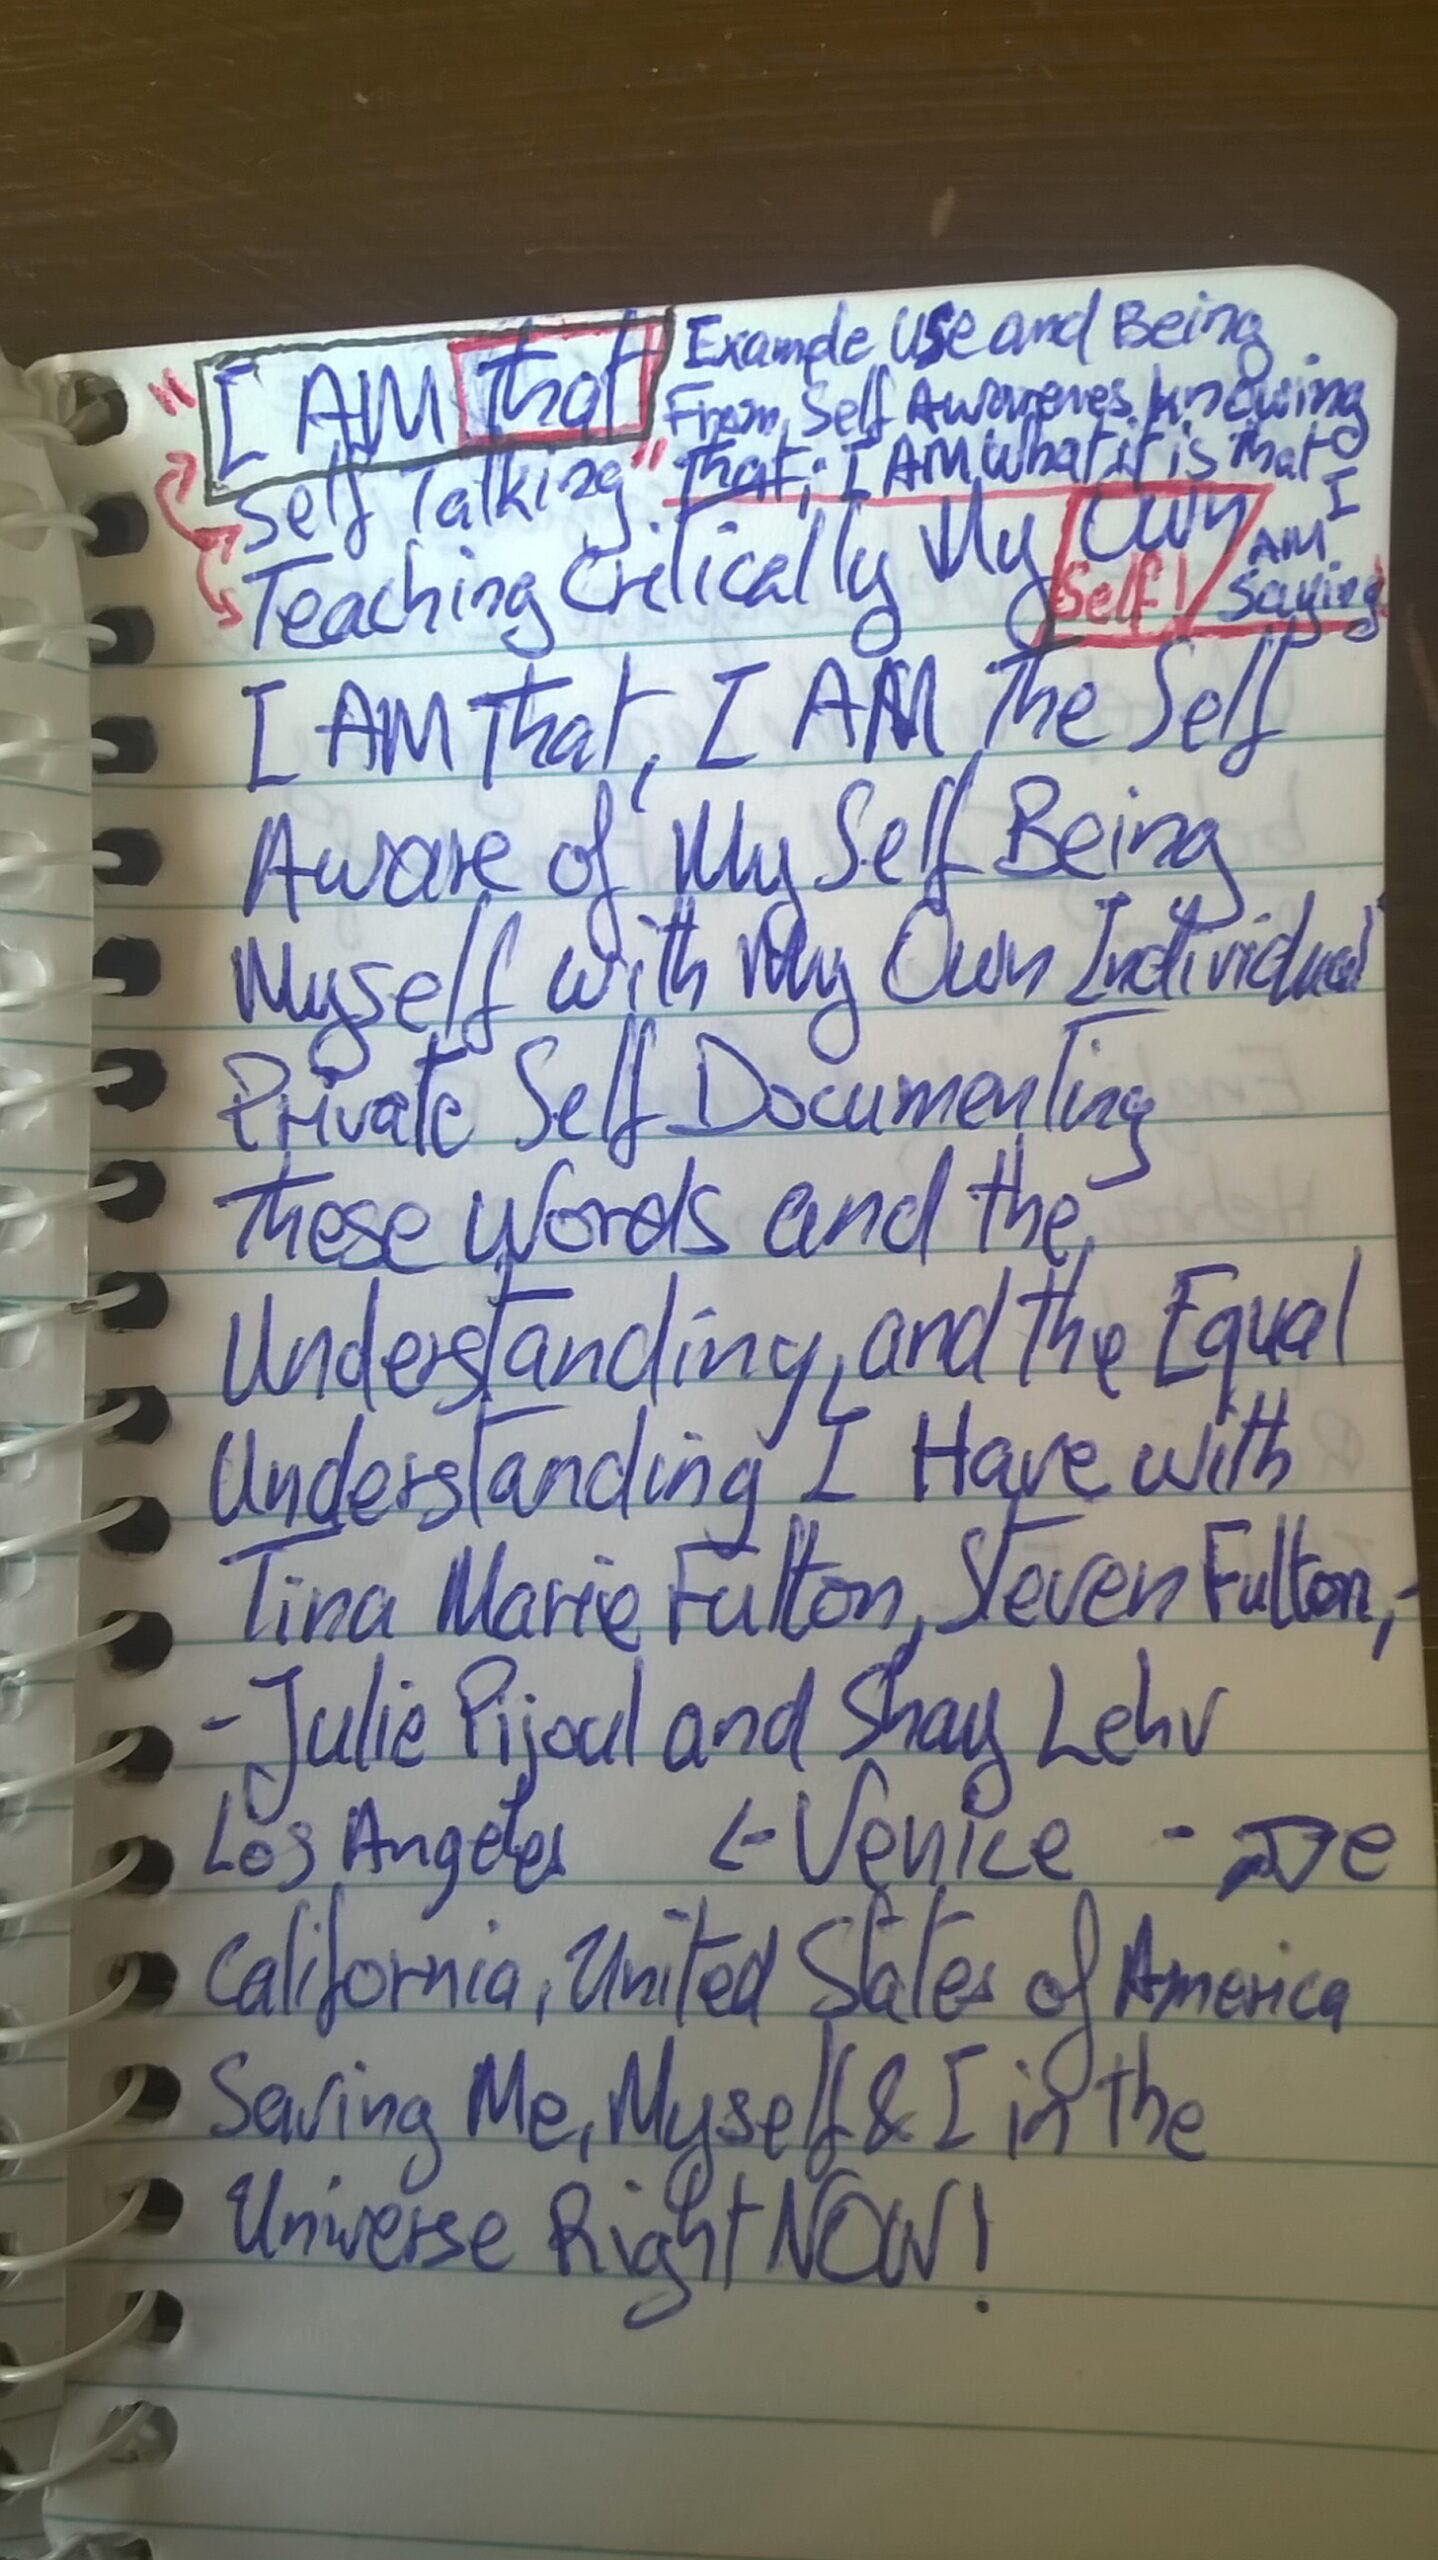 "I AM That
Self Talking"
Example Use and Being
From Self Awarenes knowing
That; I AM what it is that I
AM
saying
Teaching Critically My Own
Self!
I AM That, I AM The Self
Aware of My Self Being
Myself with My Own Individual
Private Self Documenting
These Words and the
Understanding, and the Equal
Understanding I Have with
Tina Marie Fulton, Steven Fulton,-
-Julie Pijoul and Shay Lehv
Los Angeles <- Venice -
California, United States of America
Saving Me, Myself & I in the
Universe Right NOW!